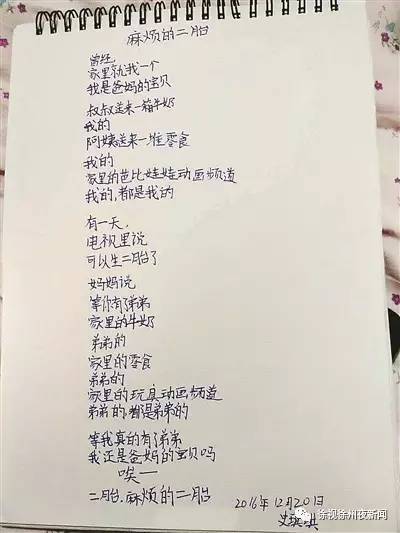 麻烦的二胎
曾经,
家里就我一个
我是爸妈的宝贝
叔叔送来一箱牛奶
我的
阿姨送来一堆零食
我的
家里的芭比娃娃动画频道
我的,都是我的
有一天,
电视里说
可以生二胎了
妈妈说
等你有了弟弟
家里的牛奶
弟弟的
家里的零食
弟弟的
家里的玩具动画频道
弟弟的,都是弟弟的
等我真的有了弟弟
我还是爸妈的宝贝吗
唉——
二胎,麻烦的二胎
2016年12月20日
徐视徐州夜新闻